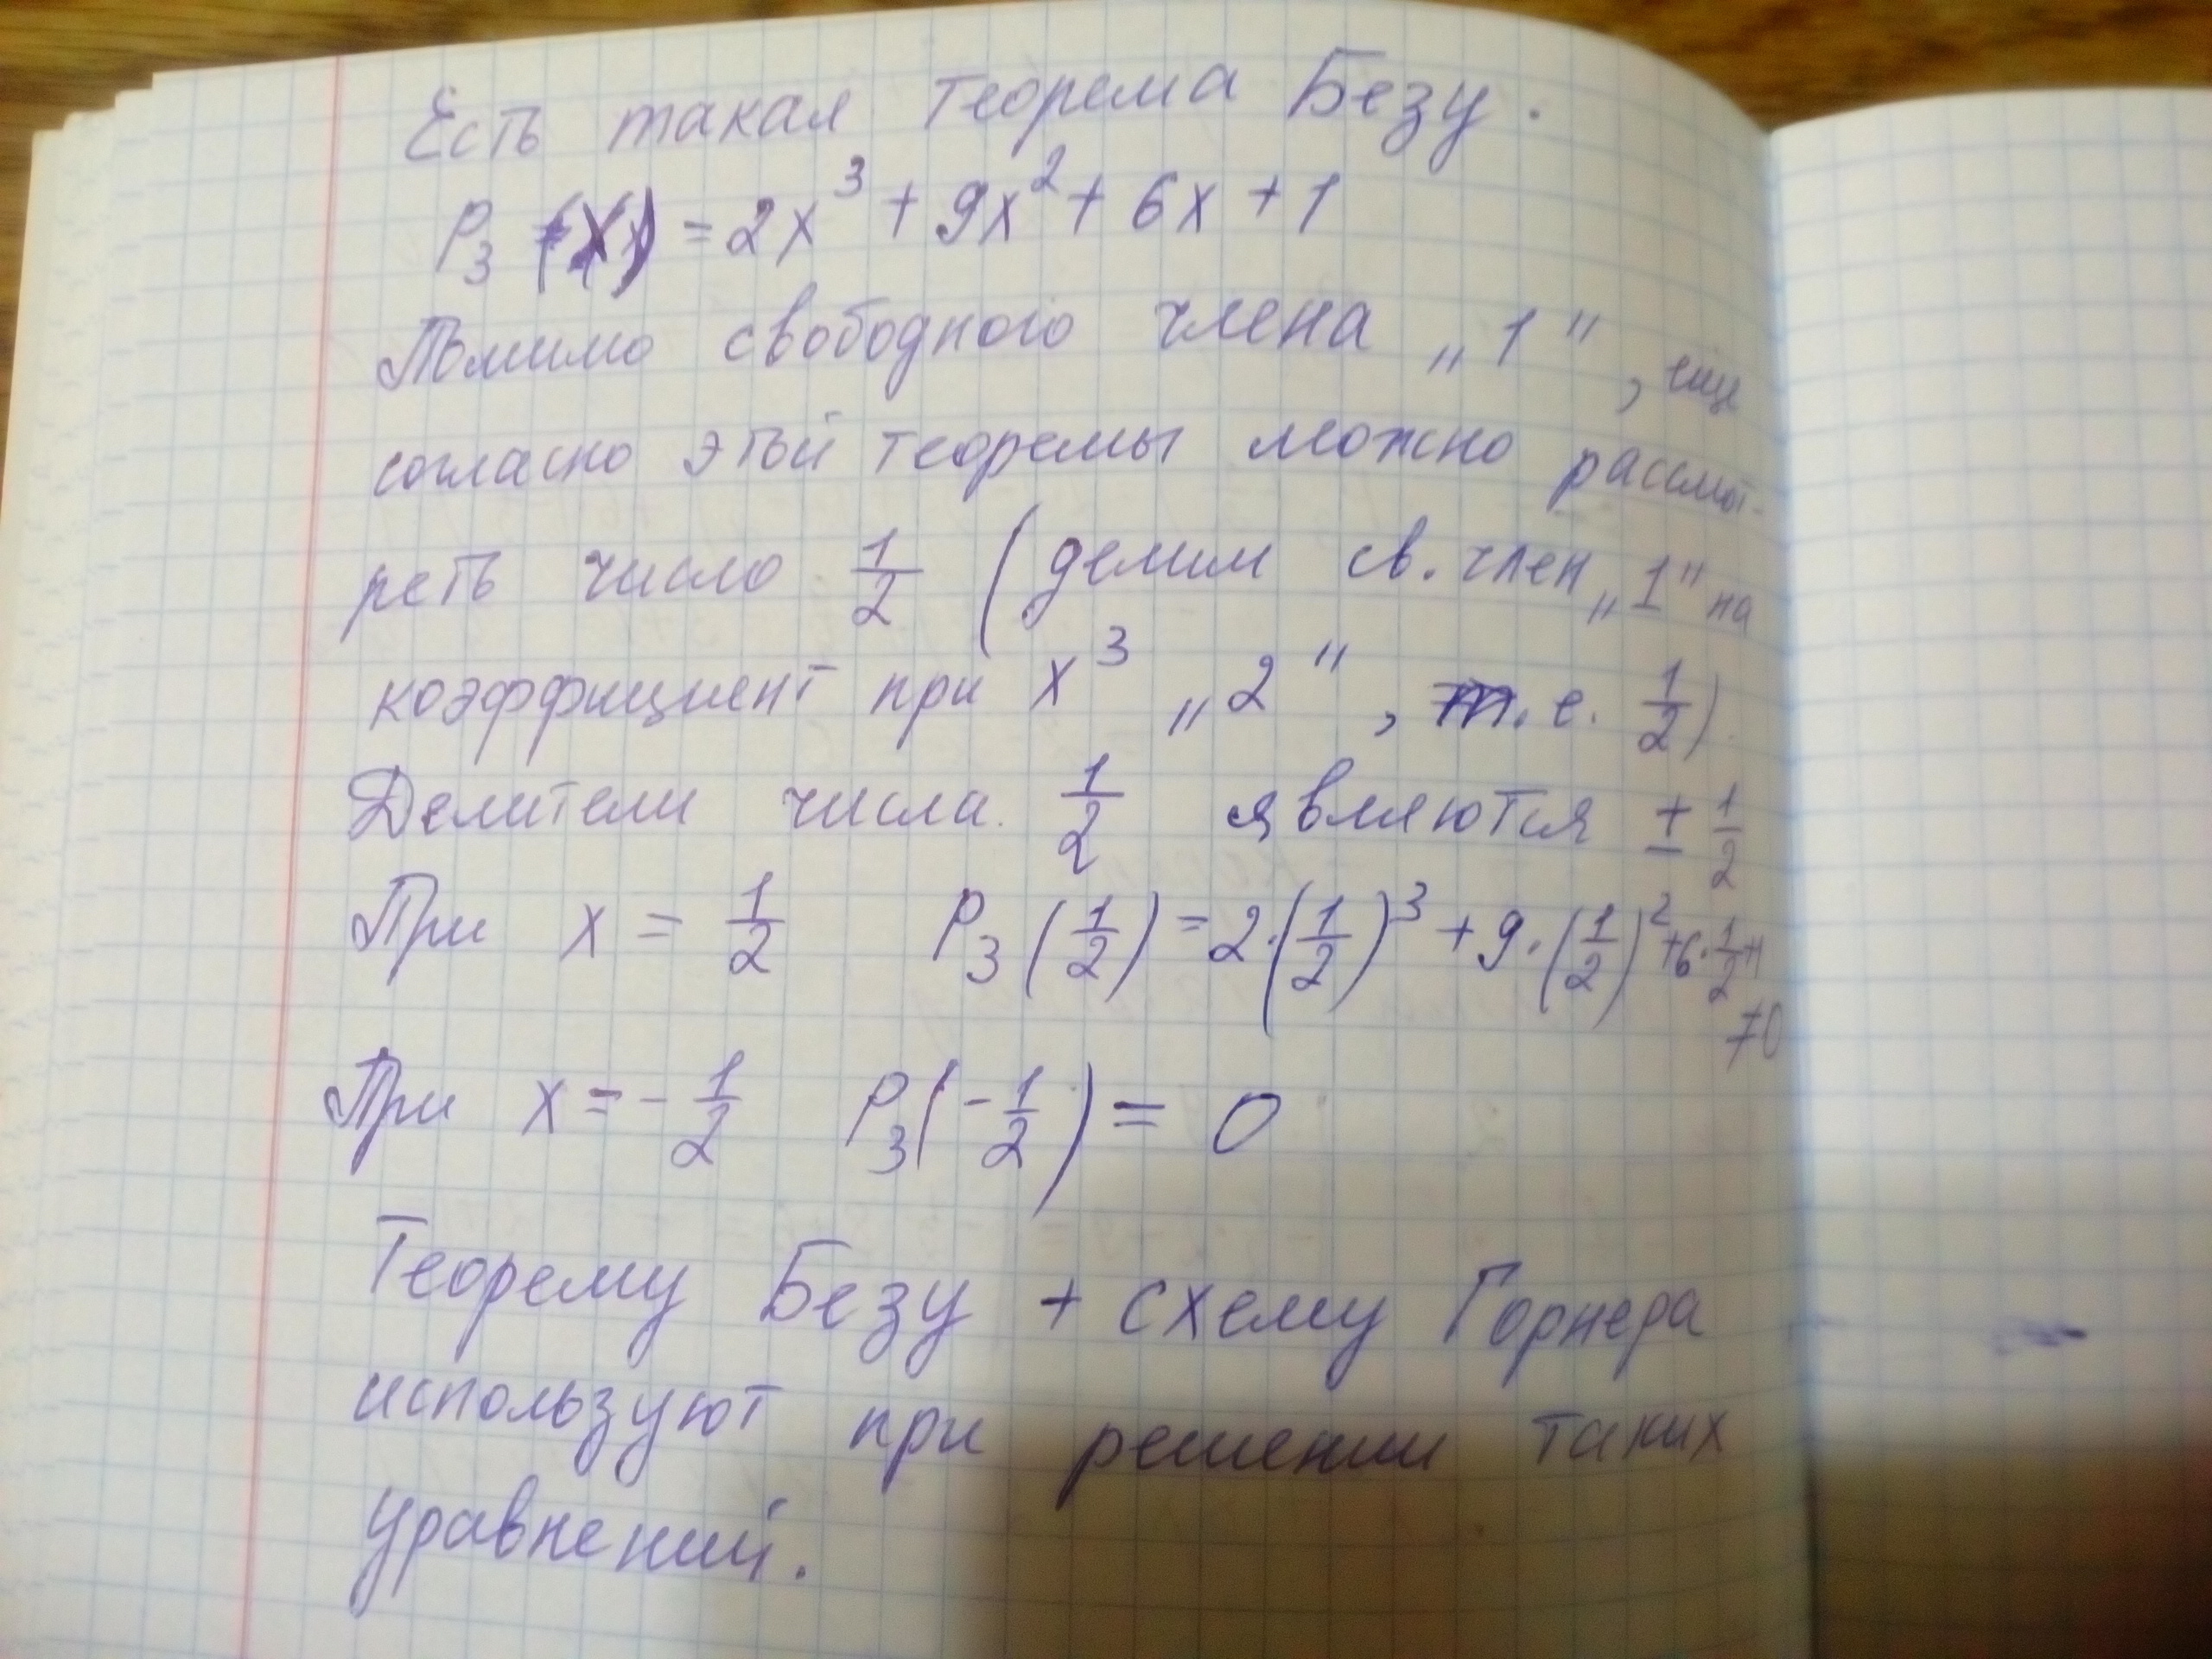 Есть такая теорема Безу.
P₃(x) = 2x³ + 9x² + 6x + 1
Помимо свободного члена „1“, еще
согласно этой теоремы можно рассмот-
реть число 1/2 (делим св. член „1“ на
коэффициент при x³ „2“, т.е. 1/2)
Делители числа 1/2 являются ± 1/2
При x = 1/2 P₃(1/2) = 2·(1/2)³ + 9·(1/2)² + 6·1/2 + 1
≠0
При x = -1/2 P₃(-1/2) = 0
Теорему Безу + схему Горнера
используют при решении таких
уравнений.